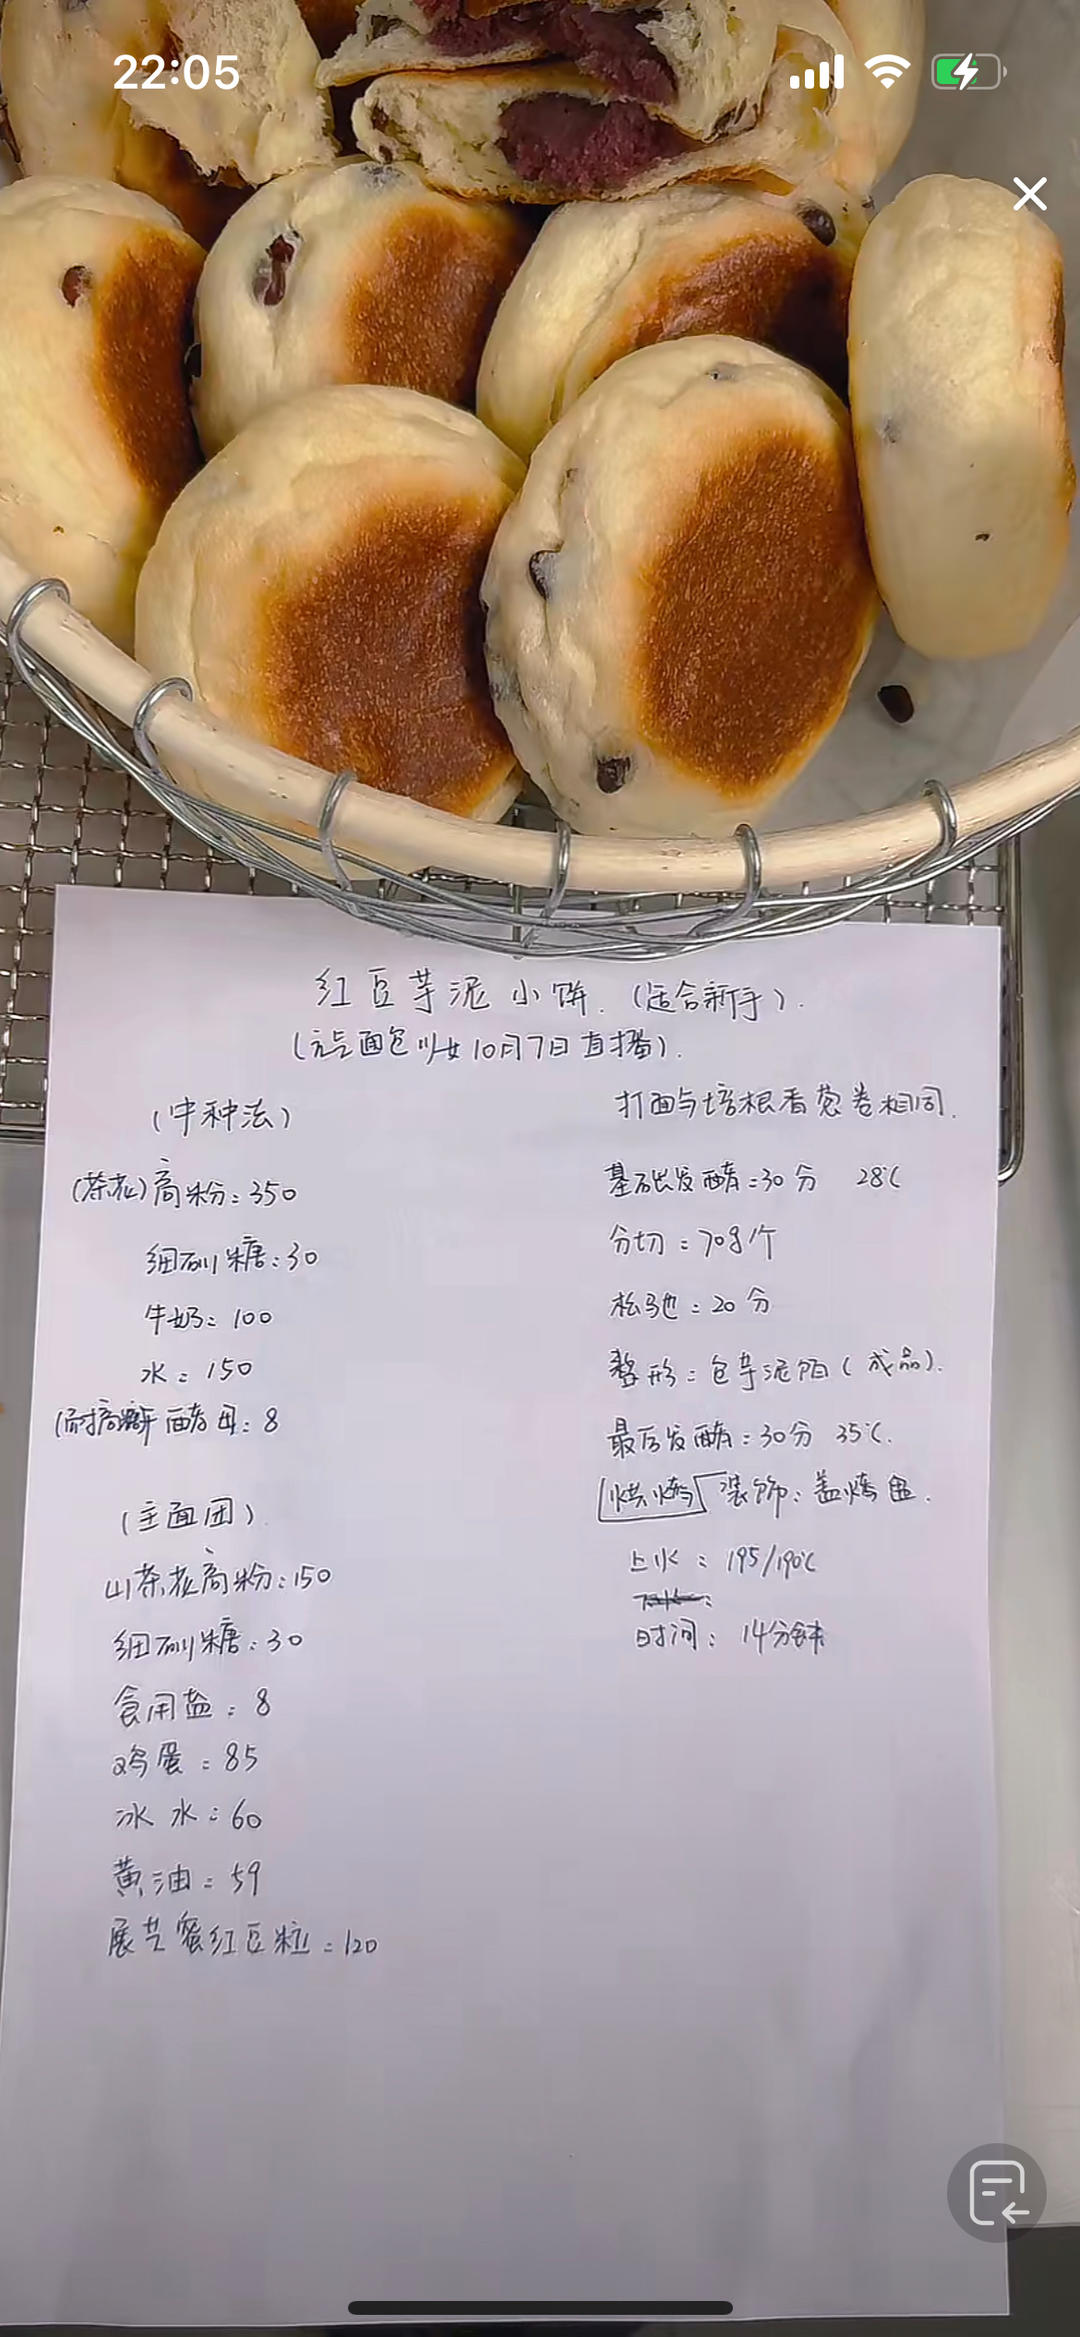 22:05
红豆芋泥小饼.（适合新手）.
面包少女10月7日直播）.
（中种法）
（茶花）高粉：350
细砂糖：30
牛奶：100
水：150
（耐高糖 酵母：8
（主面团）
山茶花高粉：150
细砂糖：30
食用盐：8
鸡蛋：85
冰水：60
黄油：59
展艺蜜红豆粒：120
打面与培根香葱卷相同.
基础发酵：30分 28℃
分切：70g/个
松弛：20分
整形：包芋泥陷（成品）.
最后发酵：30分 35℃.
烘烤 装饰：盖烤盘.
上火：195/190℃
时间：14分钟